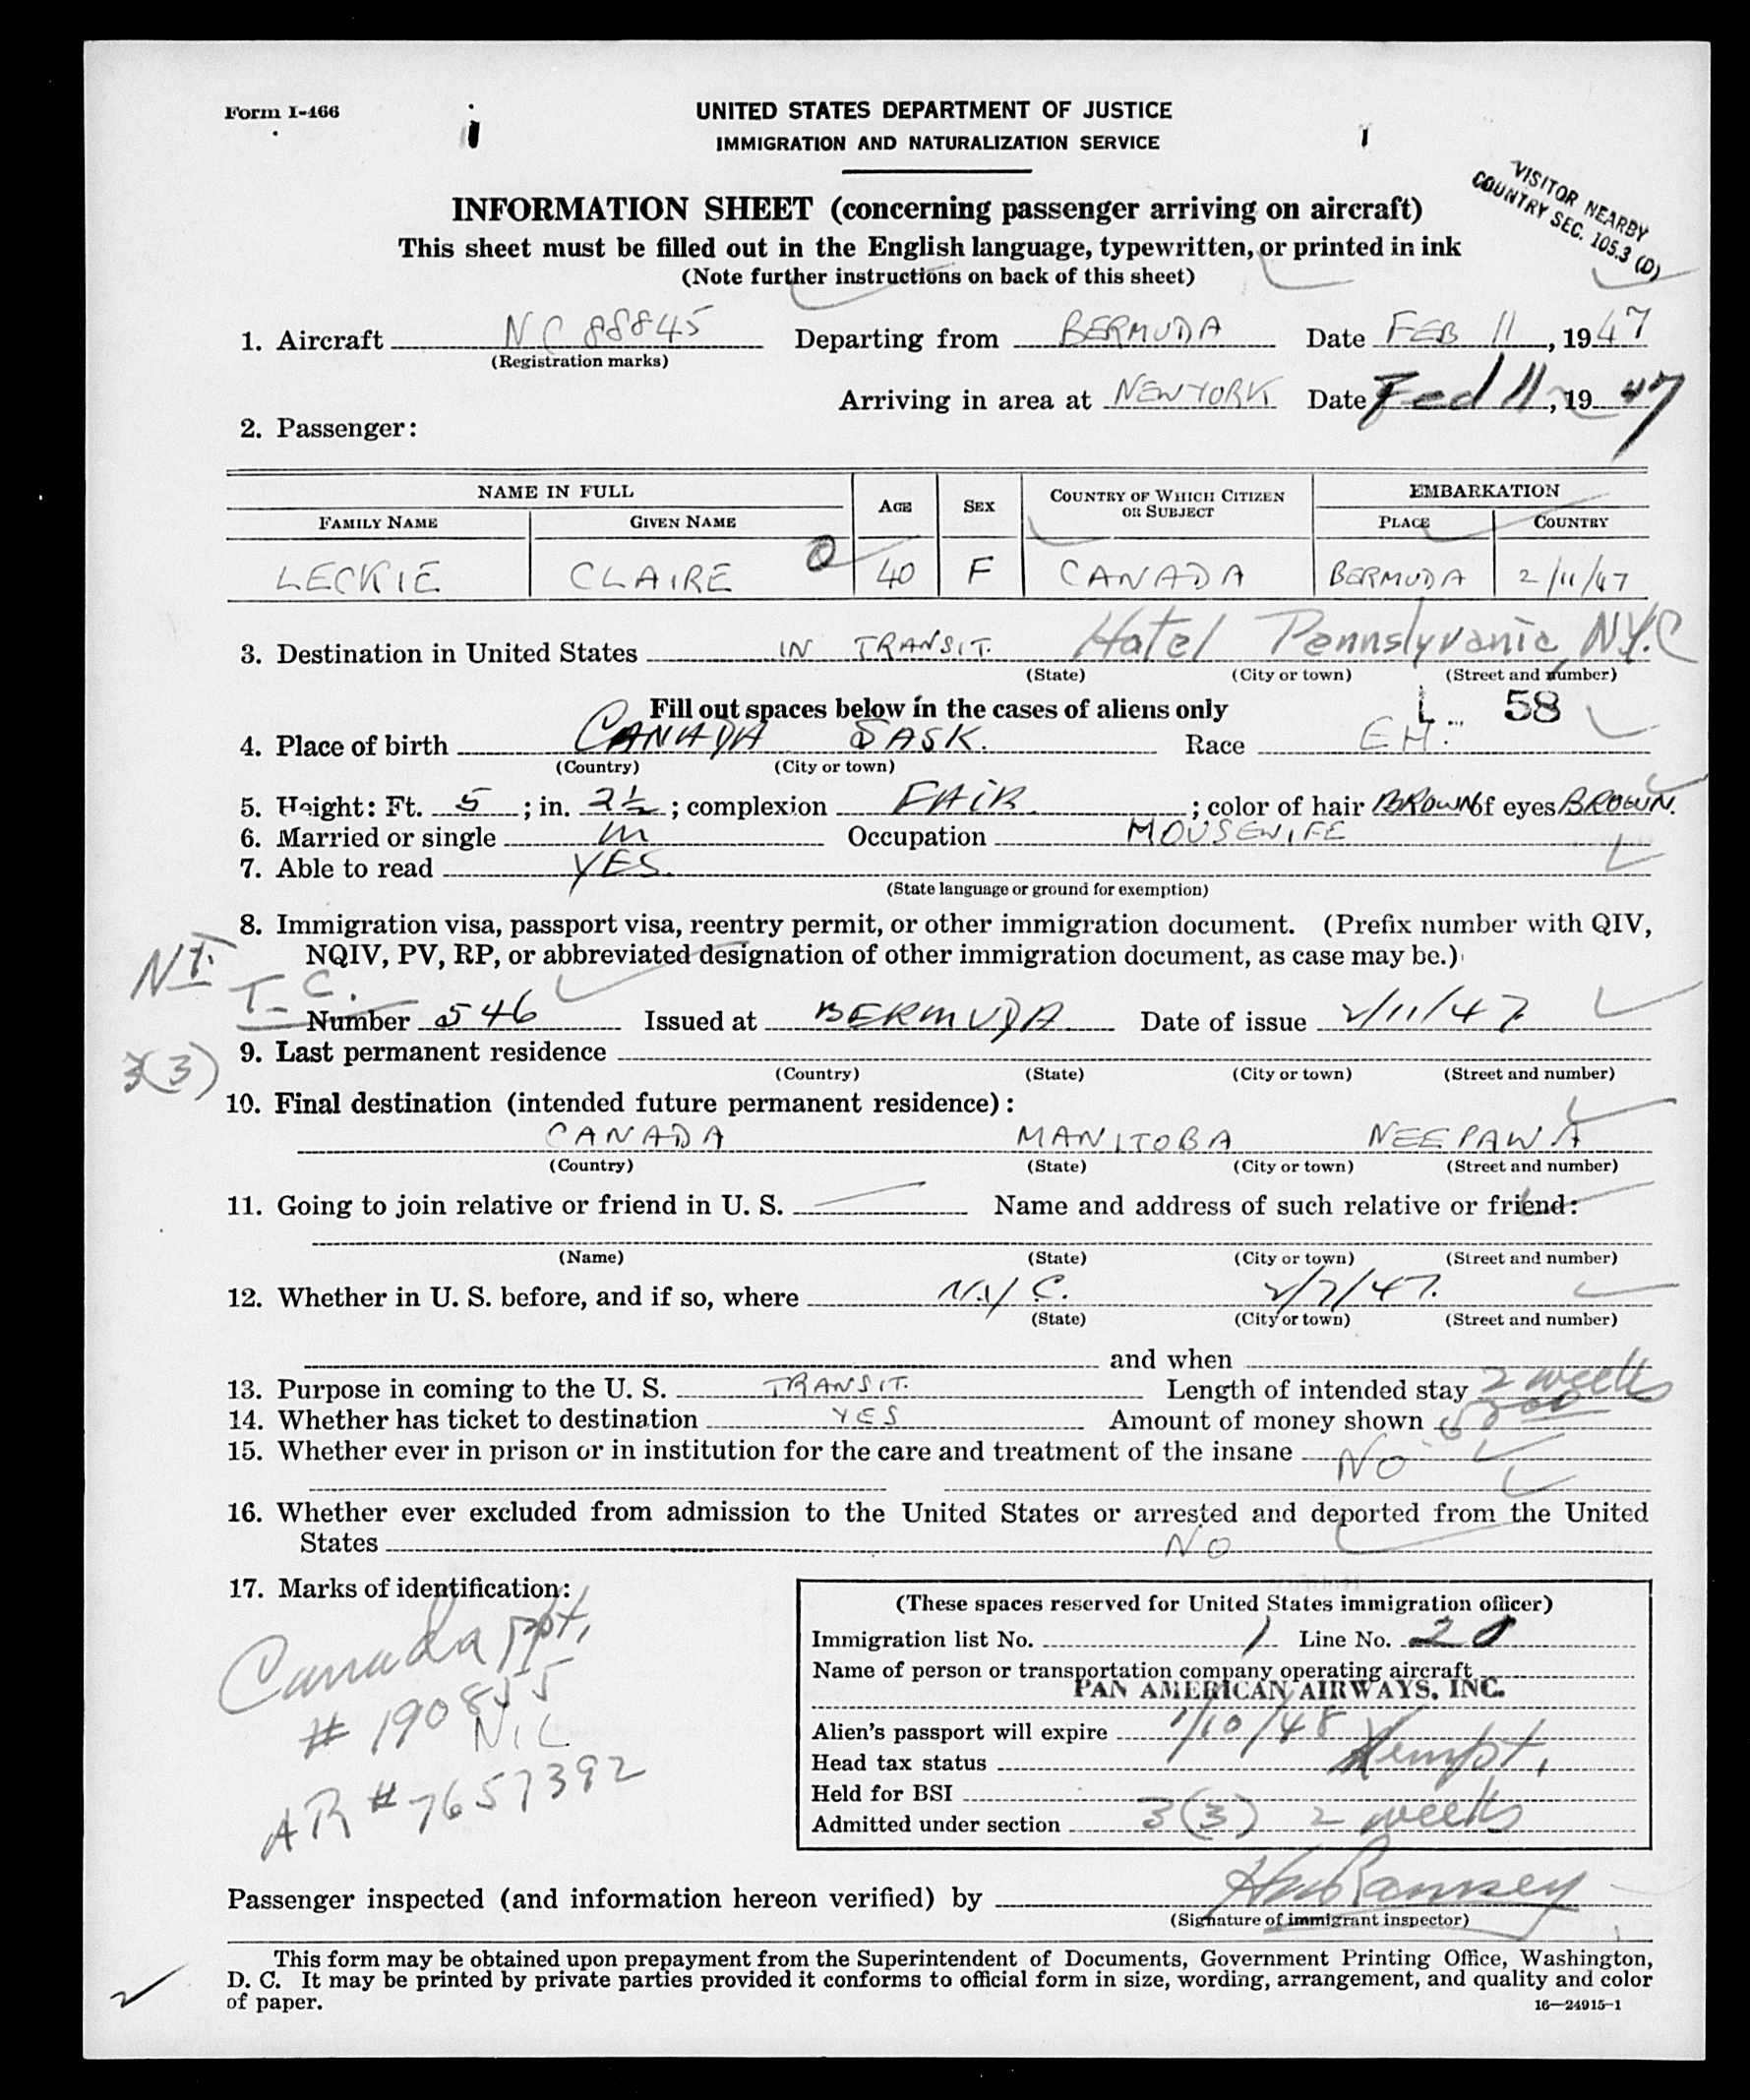 Form I-466
UNITED STATES DEPARTMENT OF JUSTICE
IMMIGRATION AND NATURALIZATION SERVICE
VISITOR NEARBY
COUNTRY SEC. 105.3 (D)
INFORMATION SHEET (concerning passenger arriving on aircraft)
This sheet must be filled out in the English language, typewritten, or printed in ink
(Note further instructions on back of this sheet)
1. Aircraft NC 88845 Departing from BERMUDA Date FEB 11, 1947
(Registration marks)
Arriving in area at NEW YORK Date Fed 11, 1947
2. Passenger:
NAME IN FULL AGE SEX COUNTRY OF WHICH CITIZEN OR SUBJECT EMBARKATION
FAMILY NAME GIVEN NAME PLACE COUNTRY
LECKIE CLAIRE 40 F CANADA BERMUDA 2/11/47
3. Destination in United States IN TRANSIT. Hotel Pennslyvania N.Y.C
(State) (City or town) (Street and number)
Fill out spaces below in the cases of aliens only L 58
4. Place of birth CANADA SASK. Race EH.
(Country) (City or town)
5. Height: Ft. 5; in. 2½; complexion FAIR; color of hair BROWN of eyes BROWN.
6. Married or single M Occupation HOUSEWIFE
7. Able to read YES.
(State language or ground for exemption)
8. Immigration visa, passport visa, reentry permit, or other immigration document. (Prefix number with QIV,
NQIV, PV, RP, or abbreviated designation of other immigration document, as case may be.)
T.C.
Number 546 Issued at BERMUDA Date of issue 2/11/47
9. Last permanent residence
3(3) (Country) (State) (City or town) (Street and number)
10. Final destination (intended future permanent residence):
CANADA MANITOBA NEEPAWA
(Country) (State) (City or town) (Street and number)
11. Going to join relative or friend in U. S. Name and address of such relative or friend:
(Name) (State) (City or town) (Street and number)
12. Whether in U. S. before, and if so, where N.Y.C. 2/7/47.
(State) (City or town) (Street and number)
and when
13. Purpose in coming to the U. S. TRANSIT. Length of intended stay 2 weeks
14. Whether has ticket to destination YES Amount of money shown
15. Whether ever in prison or in institution for the care and treatment of the insane NO
16. Whether ever excluded from admission to the United States or arrested and deported from the United
States NO
17. Marks of identification:
Canada ppt,
# 190855
NIL
AR # 7657392
(These spaces reserved for United States immigration officer)
Immigration list No. 1 Line No. 20
Name of person or transportation company operating aircraft
PAN AMERICAN AIRWAYS, INC.
Alien's passport will expire 1/10/48
Head tax status Xempt,
Held for BSI
Admitted under section 3(3) 2 weeks
Passenger inspected (and information hereon verified) by
(Signature of immigrant inspector)
This form may be obtained upon prepayment from the Superintendent of Documents, Government Printing Office, Washington,
D. C. It may be printed by private parties provided it conforms to official form in size, wording, arrangement, and quality and color
of paper.
16—24915-1